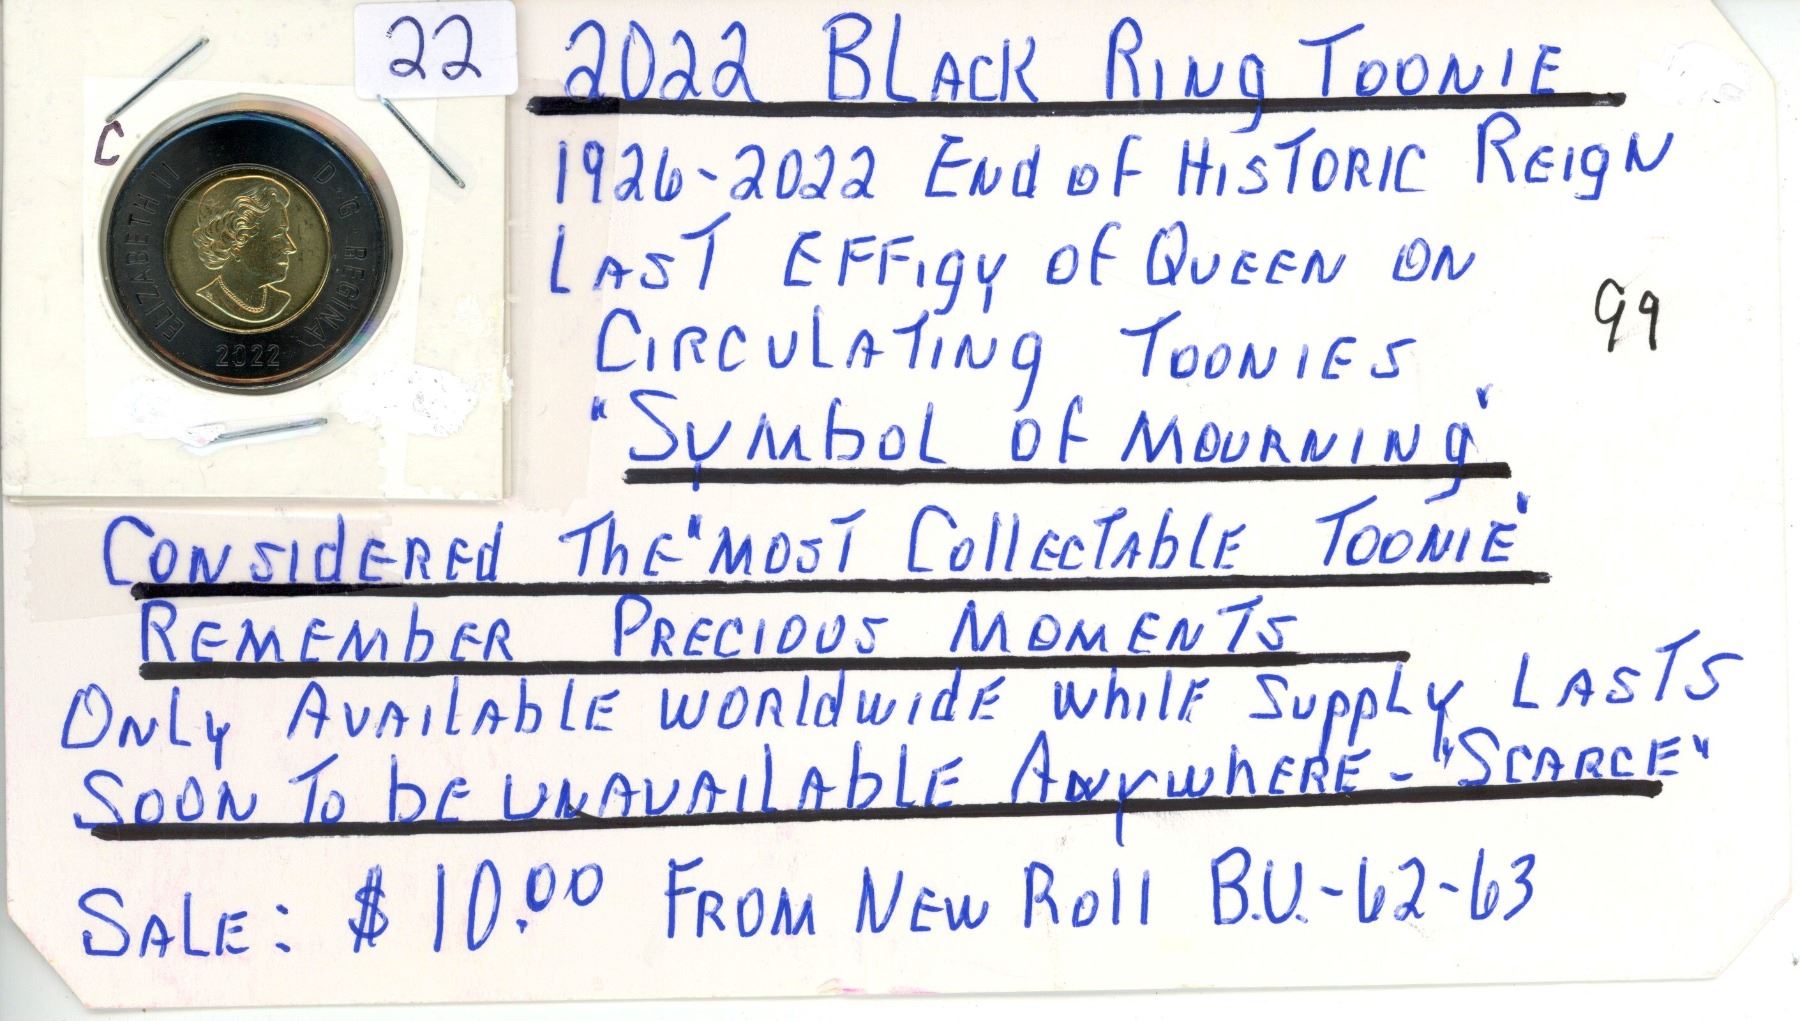 22
2022 BLACK RING TOONIE
C
ELIZABETH II D·G·REGINA
2022
1926-2022 END OF HISTORIC REIGN
LAST EFFIGY OF QUEEN ON
CIRCULATING TOONIES
99
"SYMBOL OF MOURNING"
CONSIDERED THE "MOST COLLECTABLE TOONIE"
REMEMBER PRECIOUS MOMENTS
ONLY AVAILABLE WORLDWIDE WHILE SUPPLY LASTS
SOON TO BE UNAVAILABLE ANYWHERE - "SCARCE"
SALE: $10.00 FROM NEW ROLL B.U.-62-63